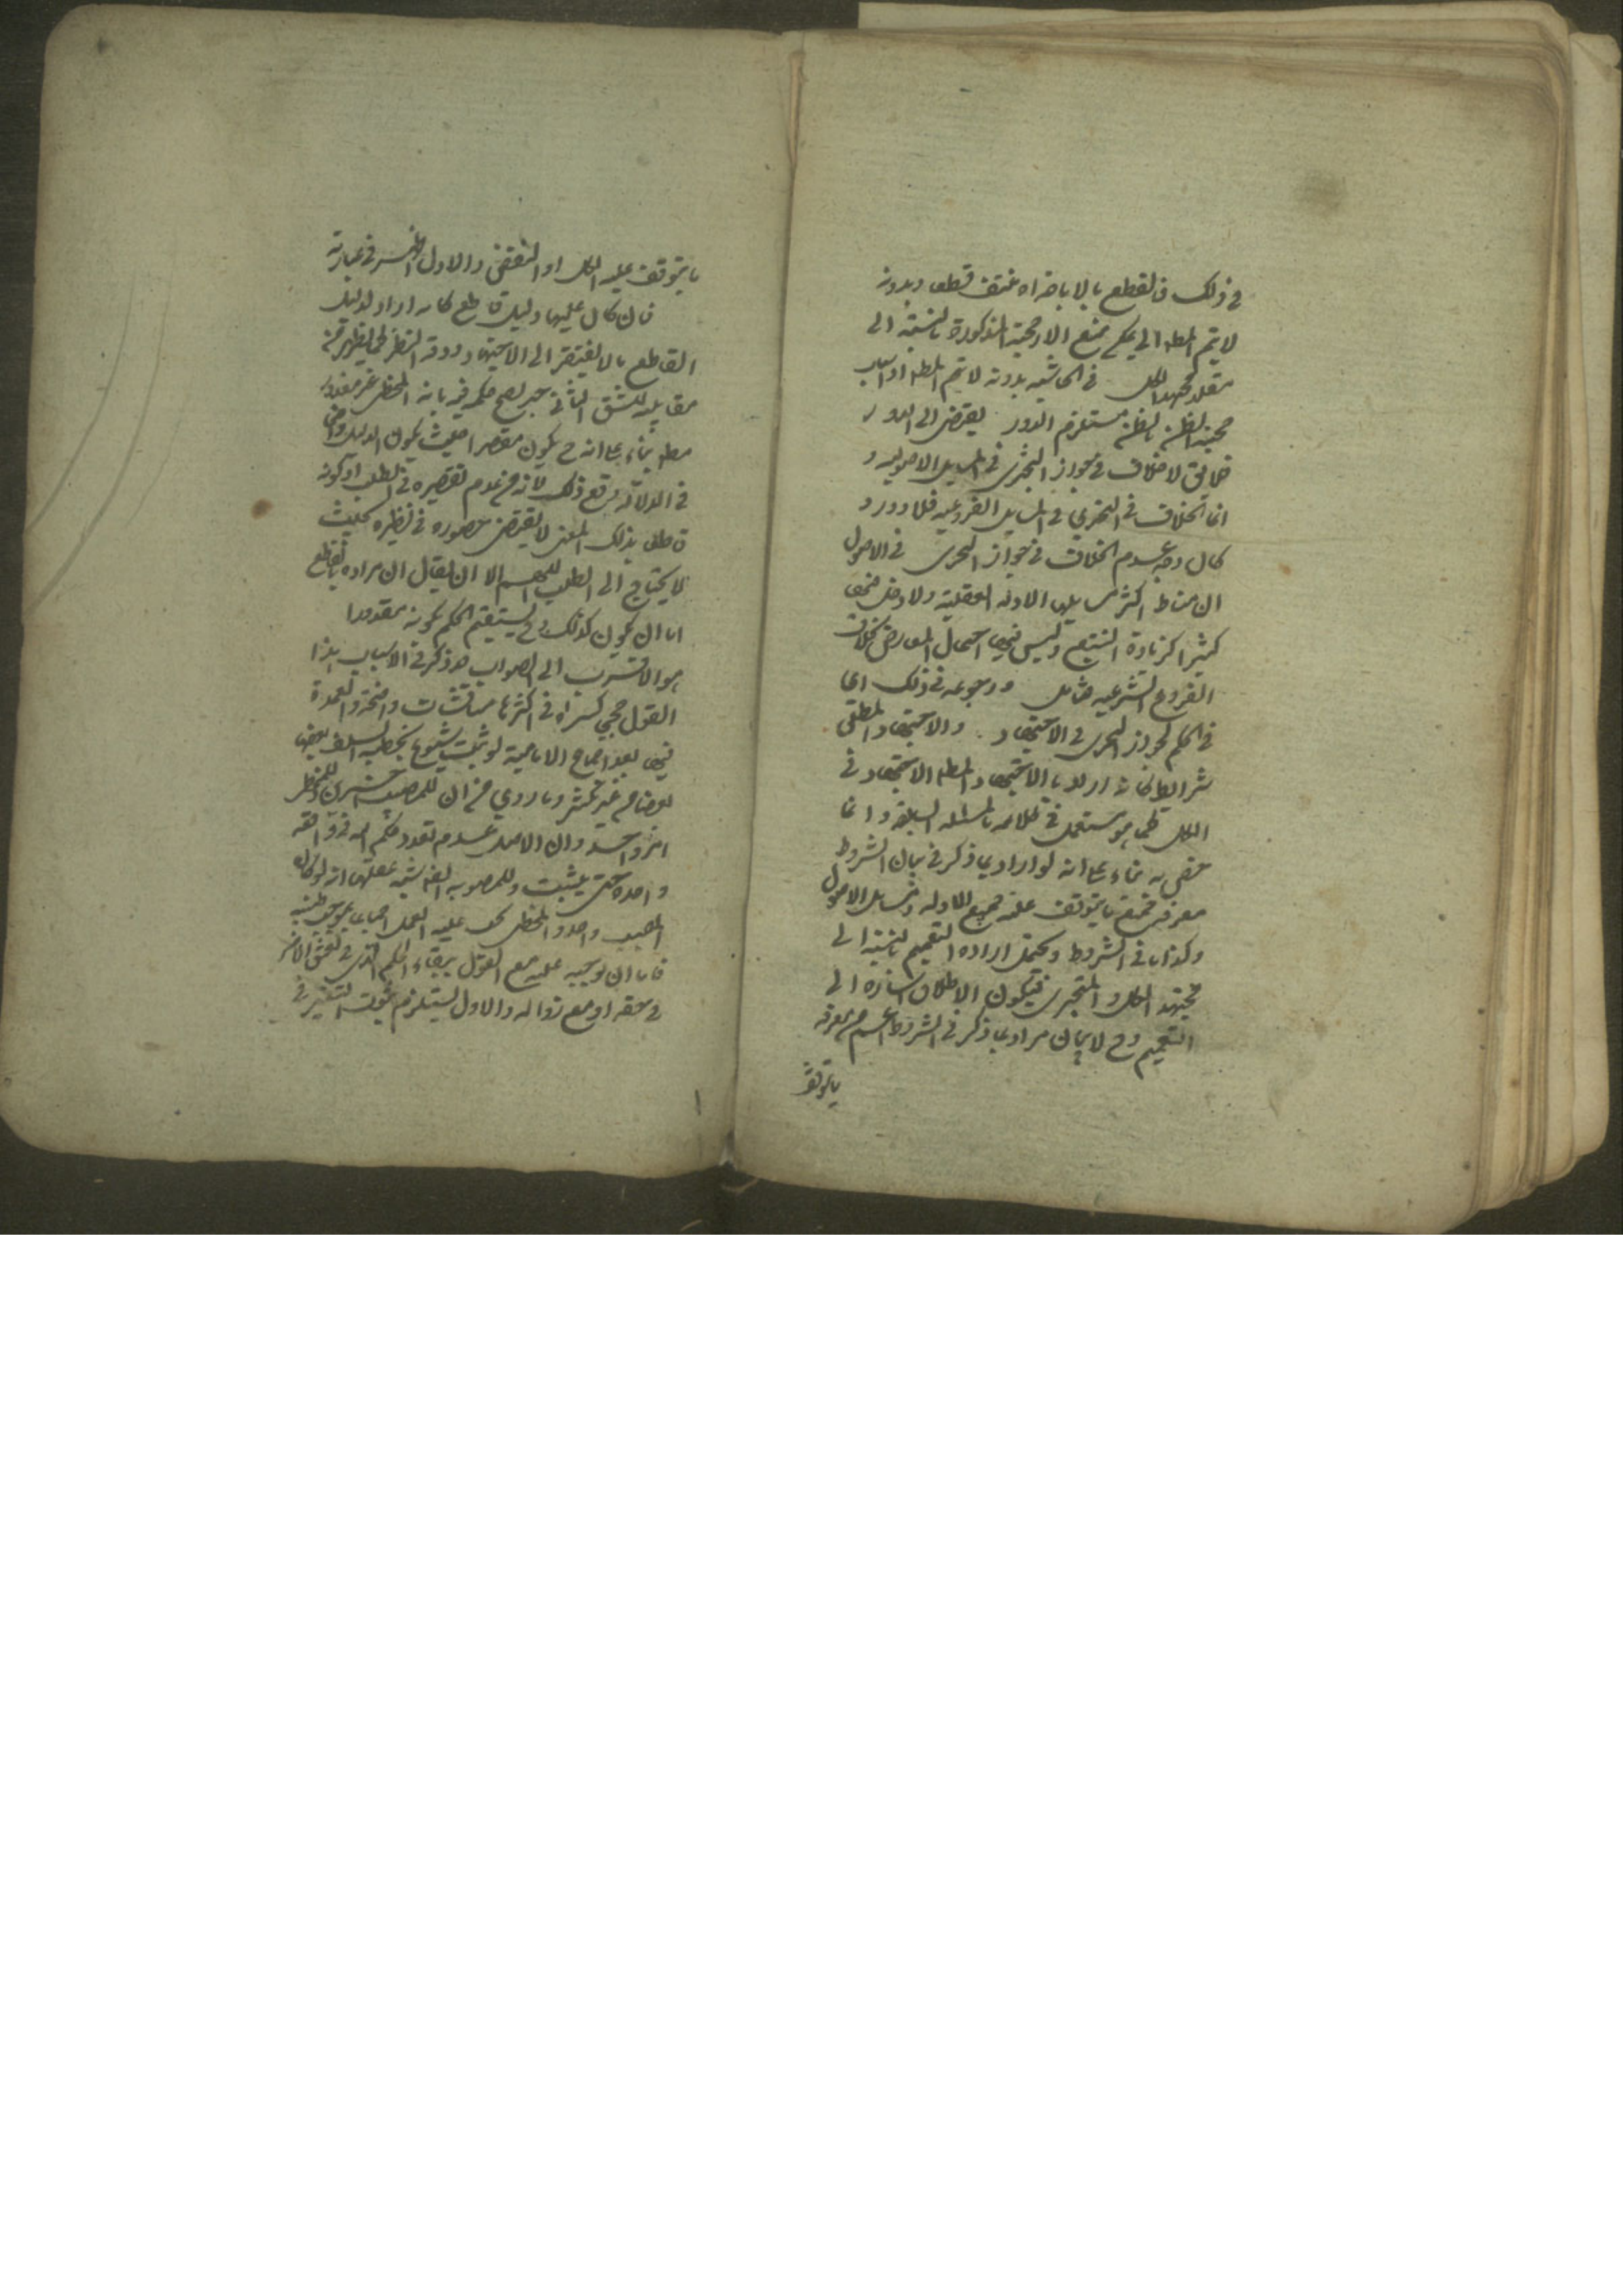 في ذلك فالقطع بالاباضراه منتف قطعا وبدونه
لا يتم المط الي يحكم بمنع الارجحية المذكورة بالنسبة الى
مقلد مجتهد الكل في الحاشيه بدونه لا يتم المط اذ اسباب
حجية الظن بالظن مستلزم الدور يقتضي الى الدور
خلافى لا خلاف في جواز التجزي في المسايل الاصوليه و
انما الخلاف في التجزي في المسايل الفروعيه فلا دور و
كان وجه عدم الخلاف في جواز التجزي في الاصول
ان مناط اكثر مسايلها الادلة العقلية ولا دخل فيها
كثيرا لزيادة التتبع وليس فيها احتمال المعارض بخلاف
الفروع الشرعيه فتامل ورجوعه في ذلك اى
في الحكم بجواز التجزي في الاجتهاد والاجتهاد المطلق
شرايط كانه اراد بالاجتهاد المط الاجتهاد في
الكل كما هو مستعمل في كلامه بالمسئله السابقه وانما
خص به بناء على انه لو اراد بما ذكر في بيان الشروط
معرفة جميع ما يتوقف عليه جميع الادله ومسايل الاصول
وكذا ما في الشروط ويحتمل اراده التعميم بالنسبة الى
مجتهد الكل والمتجزي فيكون الاطلاق اشاره الى
التعميم وح لا بد ان مراد بما ذكر في الشروط اعم من معرفة
ما يتوقف
ما يتوقف عليه الكل او البعض والاول انسب في عبارته
فان كان عليها دليل قاطع كانه اراد لدليل
القاطع ما لا يفتقر الى الاجتهاد ودقه النظر كما يظهر من
مقابله للشق الثاني حتى يصح حكم فيه بانه المخطى غير معذور
مط بناء على انه ح يكون مقصرا حيث يكون الدليل واضح
في الدلاله ومع ذلك لانه مع عدم تقصيره في الطلب او كونه
قاطعا بذلك المعنى لا يقتضي حضوره في نظره بحيث
لا يحتاج الى الطلب اللهم الا ان يقال ان مراده بالقاطع
اما ان يكون كذلك وح يستقيم الحكم بكونه مقدورا
هو الاقرب الى الصواب قد ذكر في الاسباب لهذا
القول حجج كثيراه في اكثرها مناقشات واضحة والعمدة
فيها بعد اجماع الامامية لو ثبت شيوع تخطيه السلف بعضها
لبعضا من غير نكير وما روي من ان للمصيب اجرين وللمخطى
اجر واحد وان الاصل عدم تعدد حكم الله في واقعه
واحده حتى يثبت وللمصوبه ايضا شبه عقلها انه لو كان
المصيب واحد والمخطى يجب عليه العمل اجماعا بموجب ظنه
فاما ان يوجبه عليه مع القول ببقاء الحكم الذي في نفس الامر
في حقه او مع زواله والاول يستلزم ثبوت التغير في